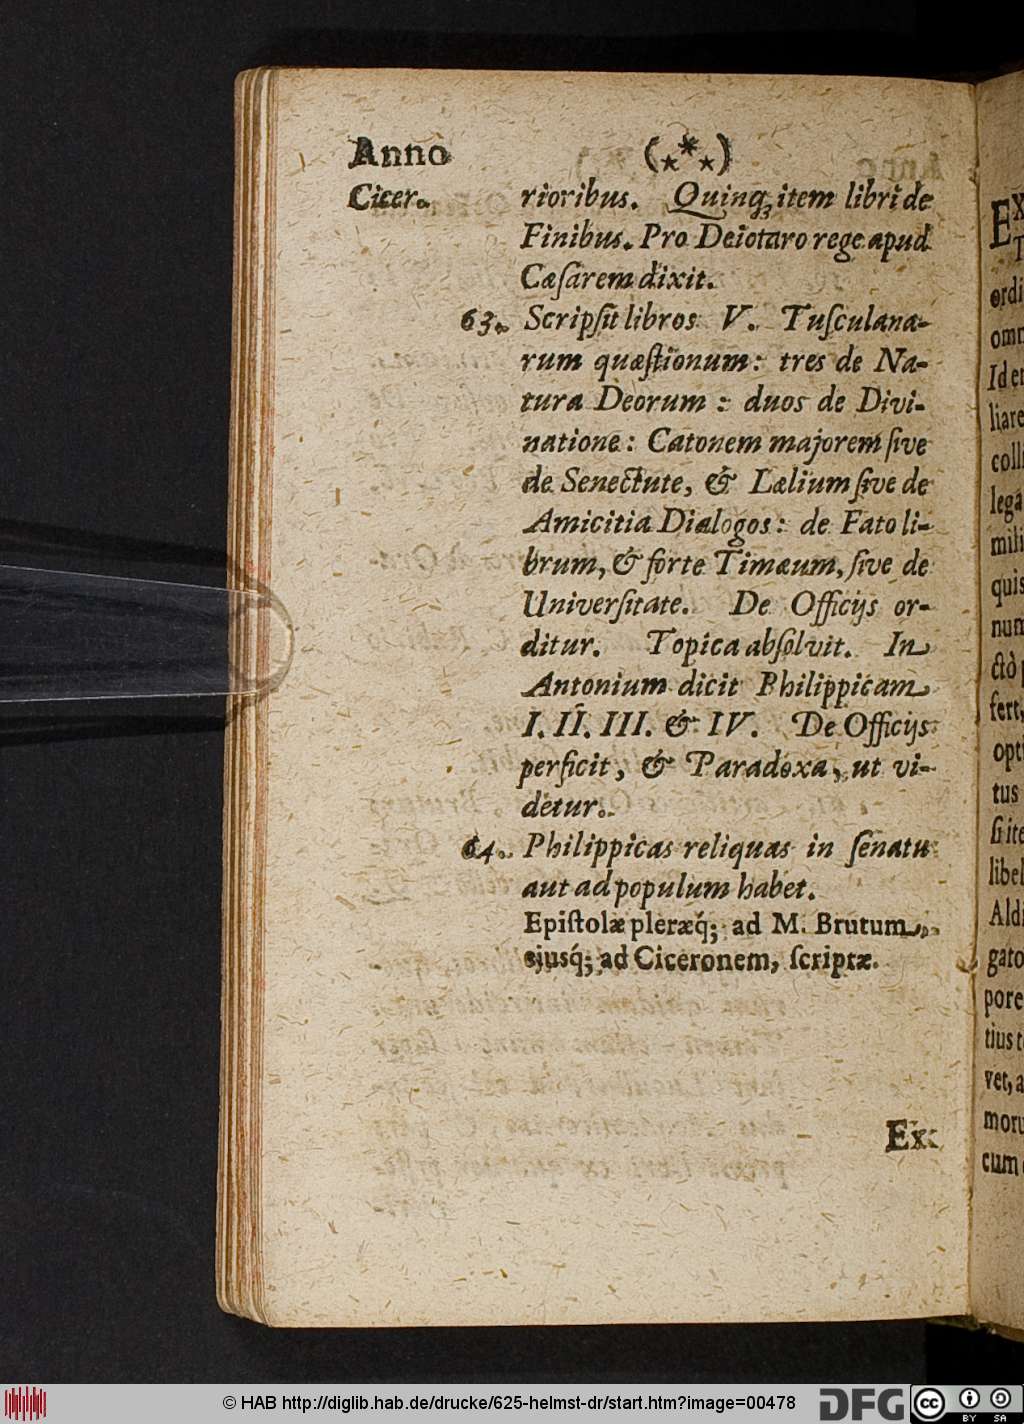 Anno (***)
Cicer. rioribus. Quinq; item libri de
Finibus. Pro Deiotaro rege apud
Cæſarem dixit.
63. Scripſit libros V. Tuſculana-
rum quæſtionum: tres de Na-
tura Deorum: duos de Divi-
natione: Catonem majorem ſive
de Senectute, & Lælium ſive de
Amicitia Dialogos: de Fato li-
brum, & forte Timæum, ſive de
Univerſitate. De Officijs or-
ditur. Topica abſolvit. In
Antonium dicit Philippicam
I. II. III. & IV. De Officijs
perficit, & Paradoxa, ut vi-
detur.
64. Philippicas reliquas in ſenatu
aut ad populum habet.
Epiſtolæ pleræq́; ad M. Brutum,
ejusq́; ad Ciceronem, ſcriptæ.
Ex
Ex
ordi
omn
liare
colli
lega
mili
quis
num
fert,
opti
tus
ſi ite
libel
Aldi
gato
pore
tius t
vet, a
moru
cum
© HAB http://diglib.hab.de/drucke/625-helmst-dr/start.htm?image=00478
DFG
cc BY SA